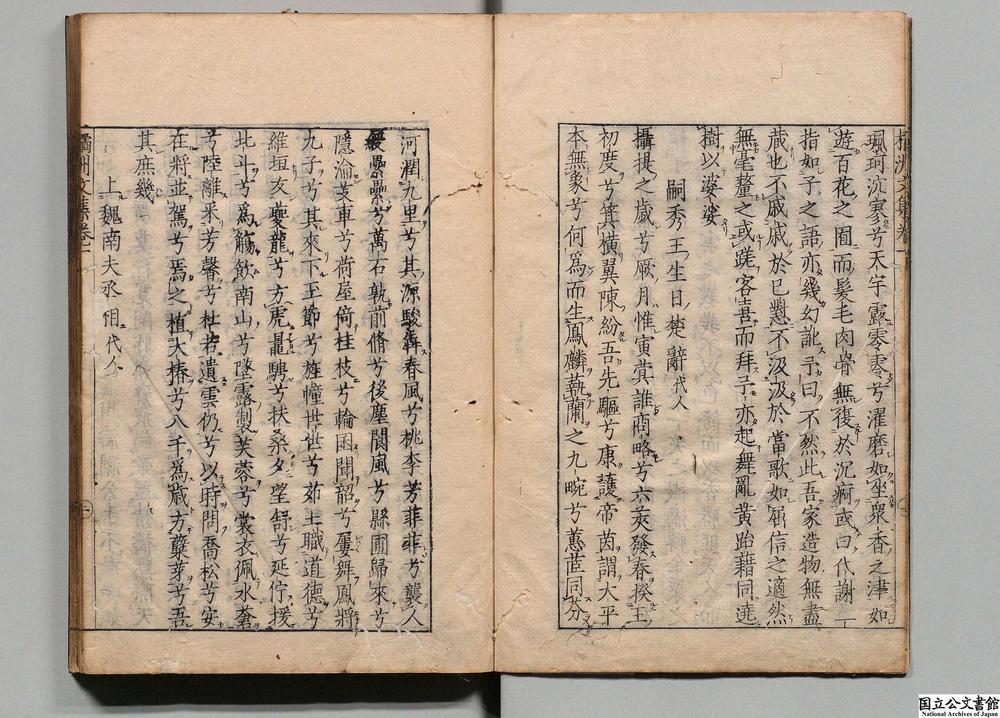 珮珂沆寥兮天宇露零零兮濯磨如坐衆香之津如
遊百花之囿而髮毛肉骨無復於沉痾或曰代謝一
指如子之語亦幾幻訛予曰不然此吾家造物無盡
藏也不戚戚於已愆不汲汲於當歌如屈信之適然
無毫釐之或蹉客喜而拜予亦起舞亂黃跆藉同遶
樹以婆娑
嗣秀王生日楚辭代人
攝提之歲兮厥月惟寅蓂誰商略兮六莢發春揆王
初度兮箕橫翼陳紛吾先驅兮康護帝茵謂大平
本無象兮何為而生鳳麟蓺蘭之九畹兮蕙茝同芬
河潤九里兮其源駿犇春風兮桃李芳菲菲兮襲人
纍纍兮萬石孰前脩兮後塵閬風兮縣圃歸來兮
隱淪芰車兮荷屋倚桂枝兮輪囷聞韶兮屢舞鳳將
九子兮其來下玉節兮旌幢世世兮茹土職道德兮
維垣友夔龍兮方虎鼂騁兮扶桑夕望舒兮延佇援
北斗兮爲觴飲南山兮墜露製芙蓉兮裳衣佩水蒼
兮陸離采芳馨兮杜若遺雲仍兮以時問喬松兮安
在將並駕兮焉之植大椿兮八千為歲方蘗芽兮吾
其庶幾
上魏南夫丞相代人
橘洲文集卷一
国立公文書館
National Archives of Japan